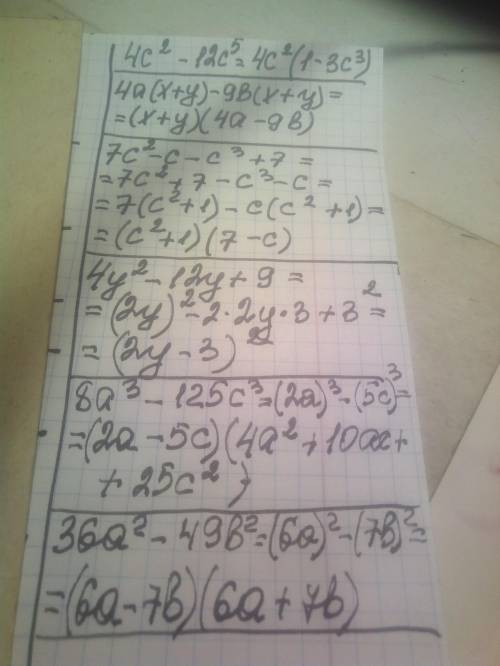 4c² - 12c⁵ = 4c²(1 - 3c³)
4a(x+y) - 9в(x+y) =
= (x+y)(4a - 9в)
7c² - c - c³ + 7 =
= 7c² + 7 - c³ - c =
= 7(c² + 1) - c(c² + 1) =
= (c² + 1)(7 - c)
4y² - 12y + 9 =
= (2y)² - 2·2y·3 + 3² =
= (2y - 3)²
8a³ - 125c³ = (2a)³ - (5c)³ =
= (2a - 5c)(4a² + 10ax +
+ 25c²)
36a² - 49в² = (6a)² - (7в)² =
= (6a - 7в)(6a + 7в)